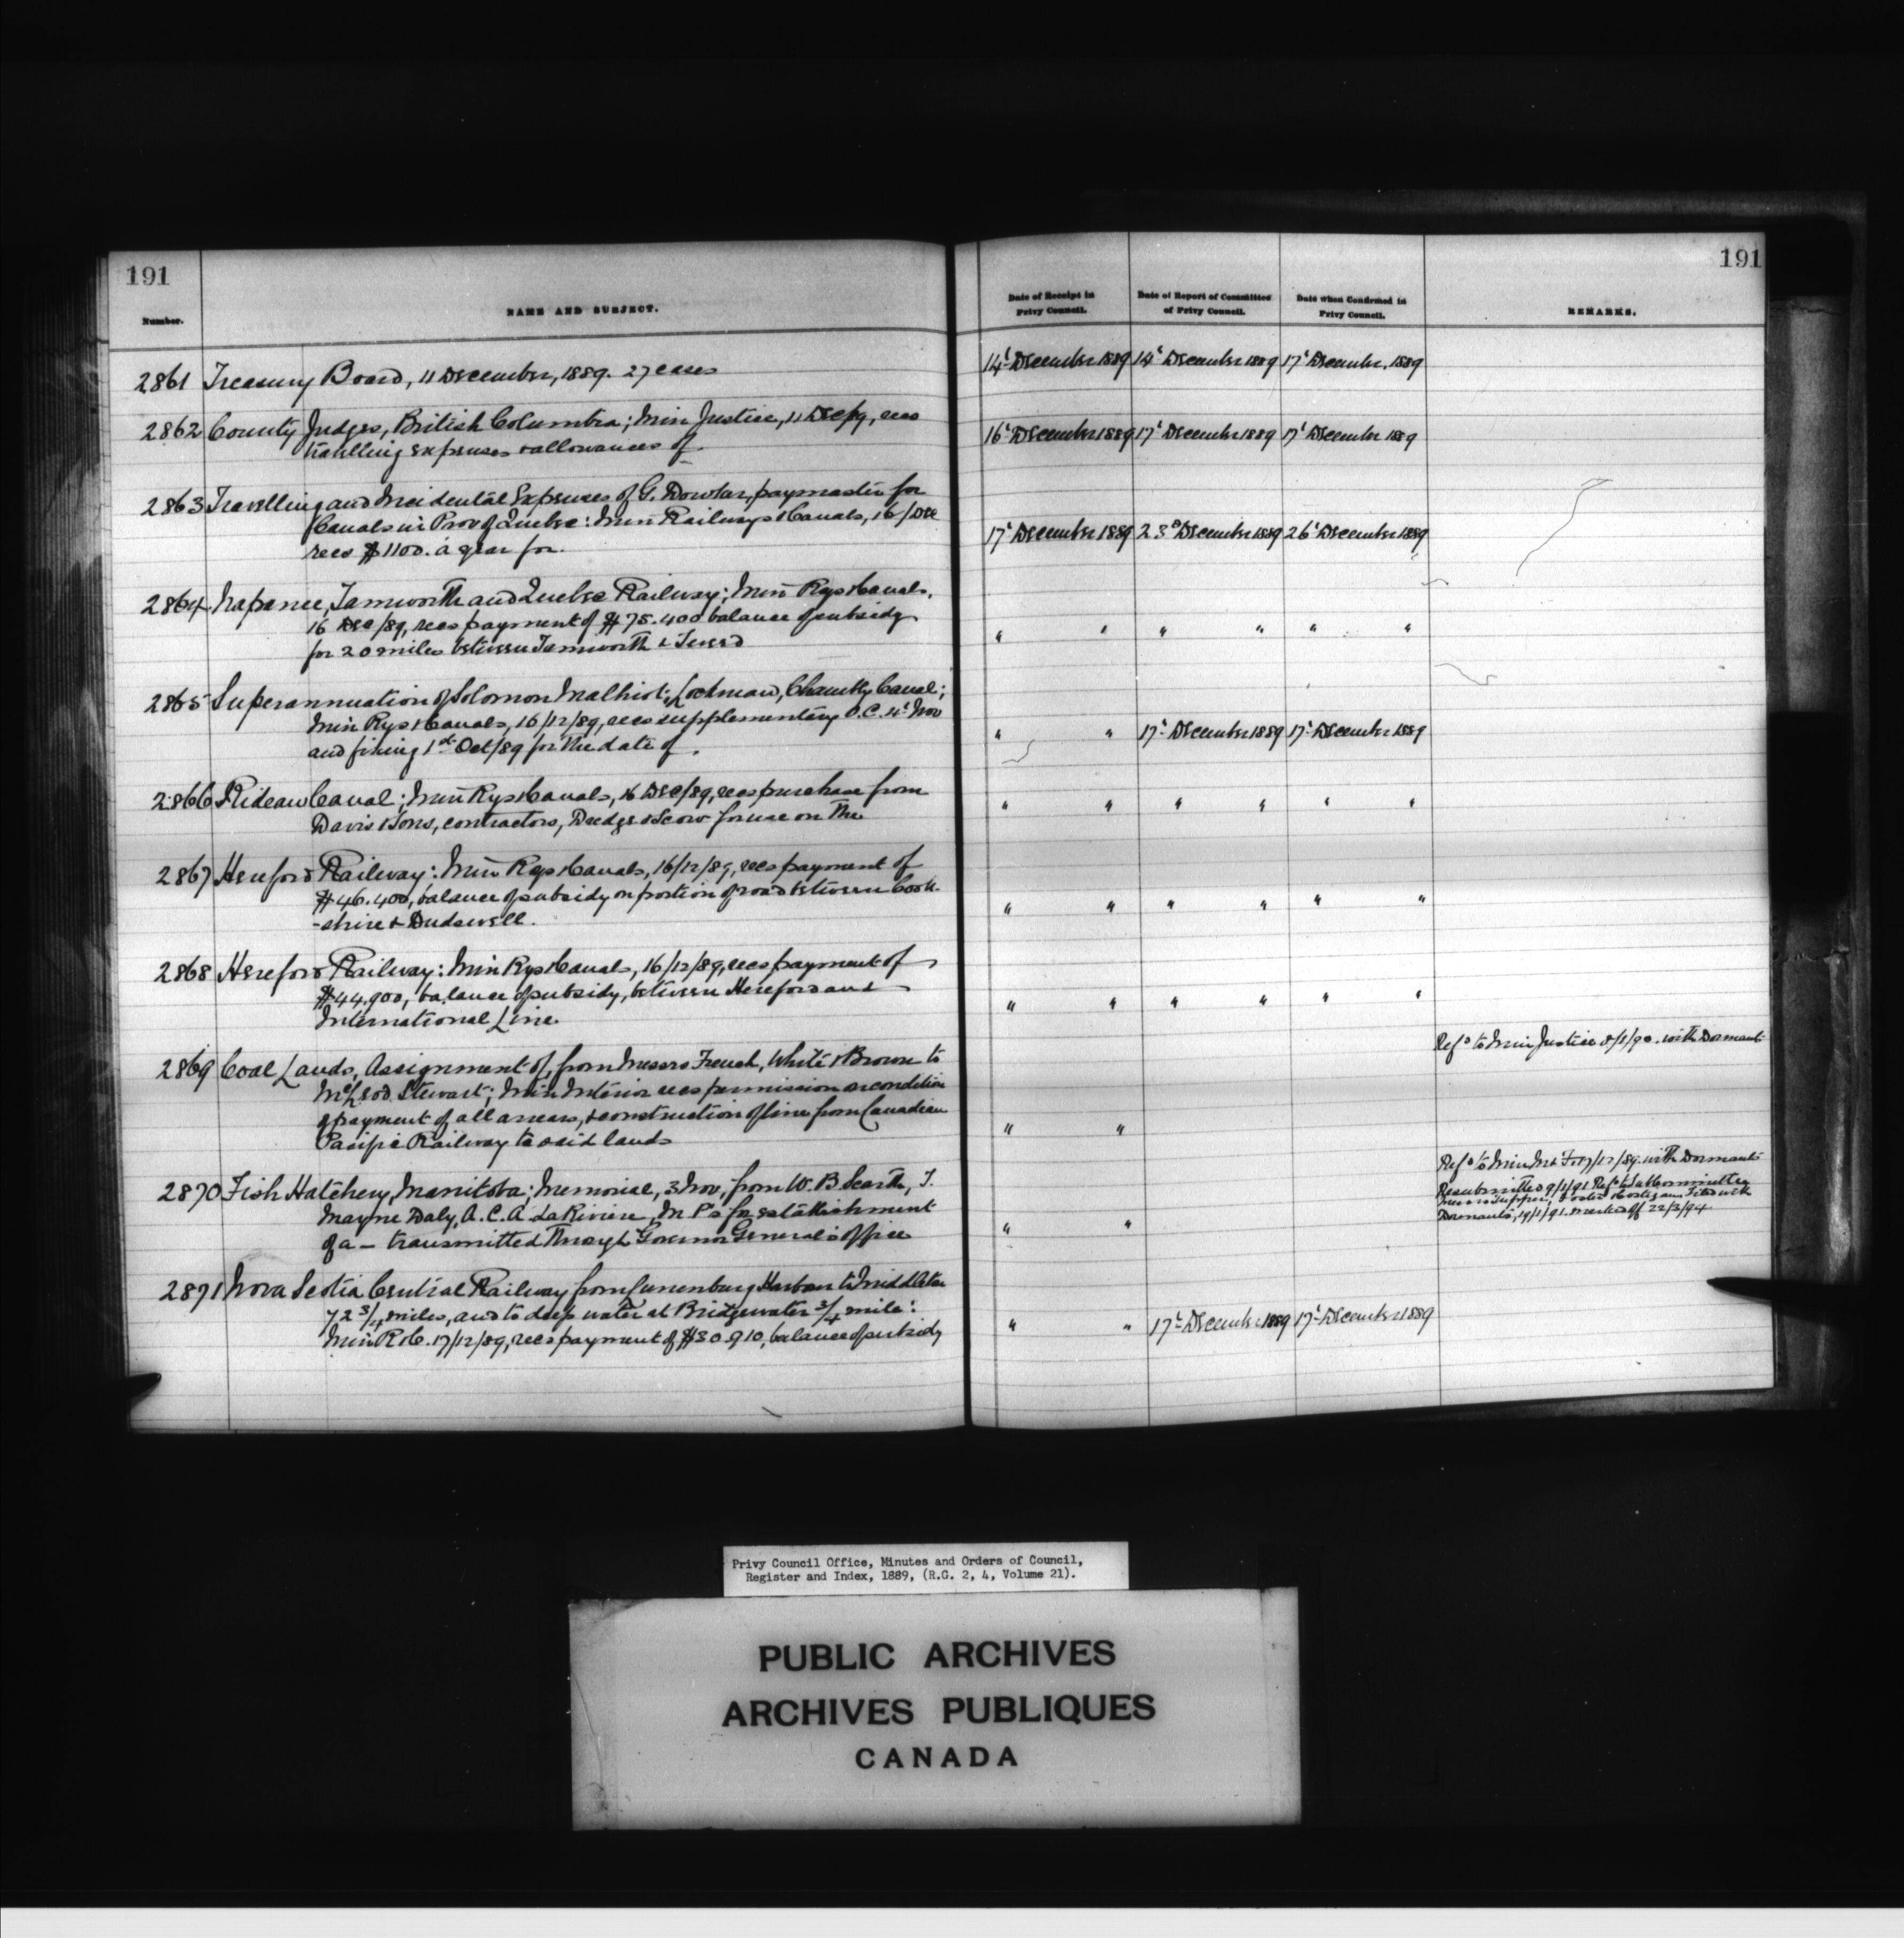 191
191
Number.
NAME AND SUBJECT.
Date of Receipt in Privy Council.
Date of Report of Committee of Privy Council.
Date when Confirmed in Privy Council.
REMARKS.
2861 Treasury Board, 11 December, 1889. 27 cases
14' December 1889 14' December 1889 17' December, 1889
2862 County Judges, British Columbia; Min Justice, 11 Dec/89, recs
travelling expenses & allowances of
16' December 1889 17' December 1889 17' December 1889
2863 Travelling and Incidental Expenses of G. paymaster for
Canals in Prov of Quebec: Min Railways & Canals, 16/Dec
recs $1100. a year for.
17' December 1889 23d December 1889 26' December 1889
2864 Napanee, Tamworth and Quebec Railway; Min Rys & Canals,
16 Dec/89, recs payment of $75.400 balance of subsidy
for 20 miles between Tamworth & Tweed
" " " " " "
2865 Superannuation of Solomon Malhiot, Lockman, Chambly Canal;
Min Rys & Canals, 16/12/89, recs supplementary O.C. 4' Nov
and fixing 1st Oct/89 for the date of.
" " 17' December 1889 17' December 1889
2866 Rideau Canal; Min Rys & Canals, 16 Dec/89, recs purchase from
Davis & Sons, contractors, Dredge & Scow for use on the
" " " " " "
2867 Hereford Railway: Min Rys & Canals, 16/12/89, recs payment of
$46.400, balance of subsidy on portion of road between Cook-
-shire & Dudswell.
" " " " " "
2868 Hereford Railway: Min Rys & Canals, 16/12/89, recs payment of
$44.900, balance of subsidy, between Hereford and
International Line.
" " " " " "
2869 Coal Lands, Assignment of, from Messrs French, White & Brown to
McLeod Stewart; Min Interior recs permission on condition
of payment of all arrears, & construction of line from Canadian
Pacific Railway to said lands
" "
Refd to Min Justice 8/1/90. with Dormants
2870 Fish Hatchery, Manitoba; Memorial, 3 Nov, from W. B. Scarth, T.
Mayne Daly, A.C.A. LaRiviere, M.P's for establishment
of a — transmitted through Governor General's office
" "
Refd to Min M & F 17/12/89. with Dormants
Resubmitted 9/1/91 Refd to Sub Committee
Messrs Tupper, Foster & Costigan Filed with
Dormants, 19/1/91. marked off 22/3/94
2871 Nova Scotia Central Railway from Lunenburg Harbour to Middleton
72 3/4 miles, and to deep water at Bridgewater 3/4 mile:
Min R & C. 17/12/89, recs payment of $30.910, balance of subsidy
" " 17' December 1889 17' December 1889
Privy Council Office, Minutes and Orders of Council,
Register and Index, 1889, (R.G. 2, 4, Volume 21).
PUBLIC ARCHIVES
ARCHIVES PUBLIQUES
CANADA